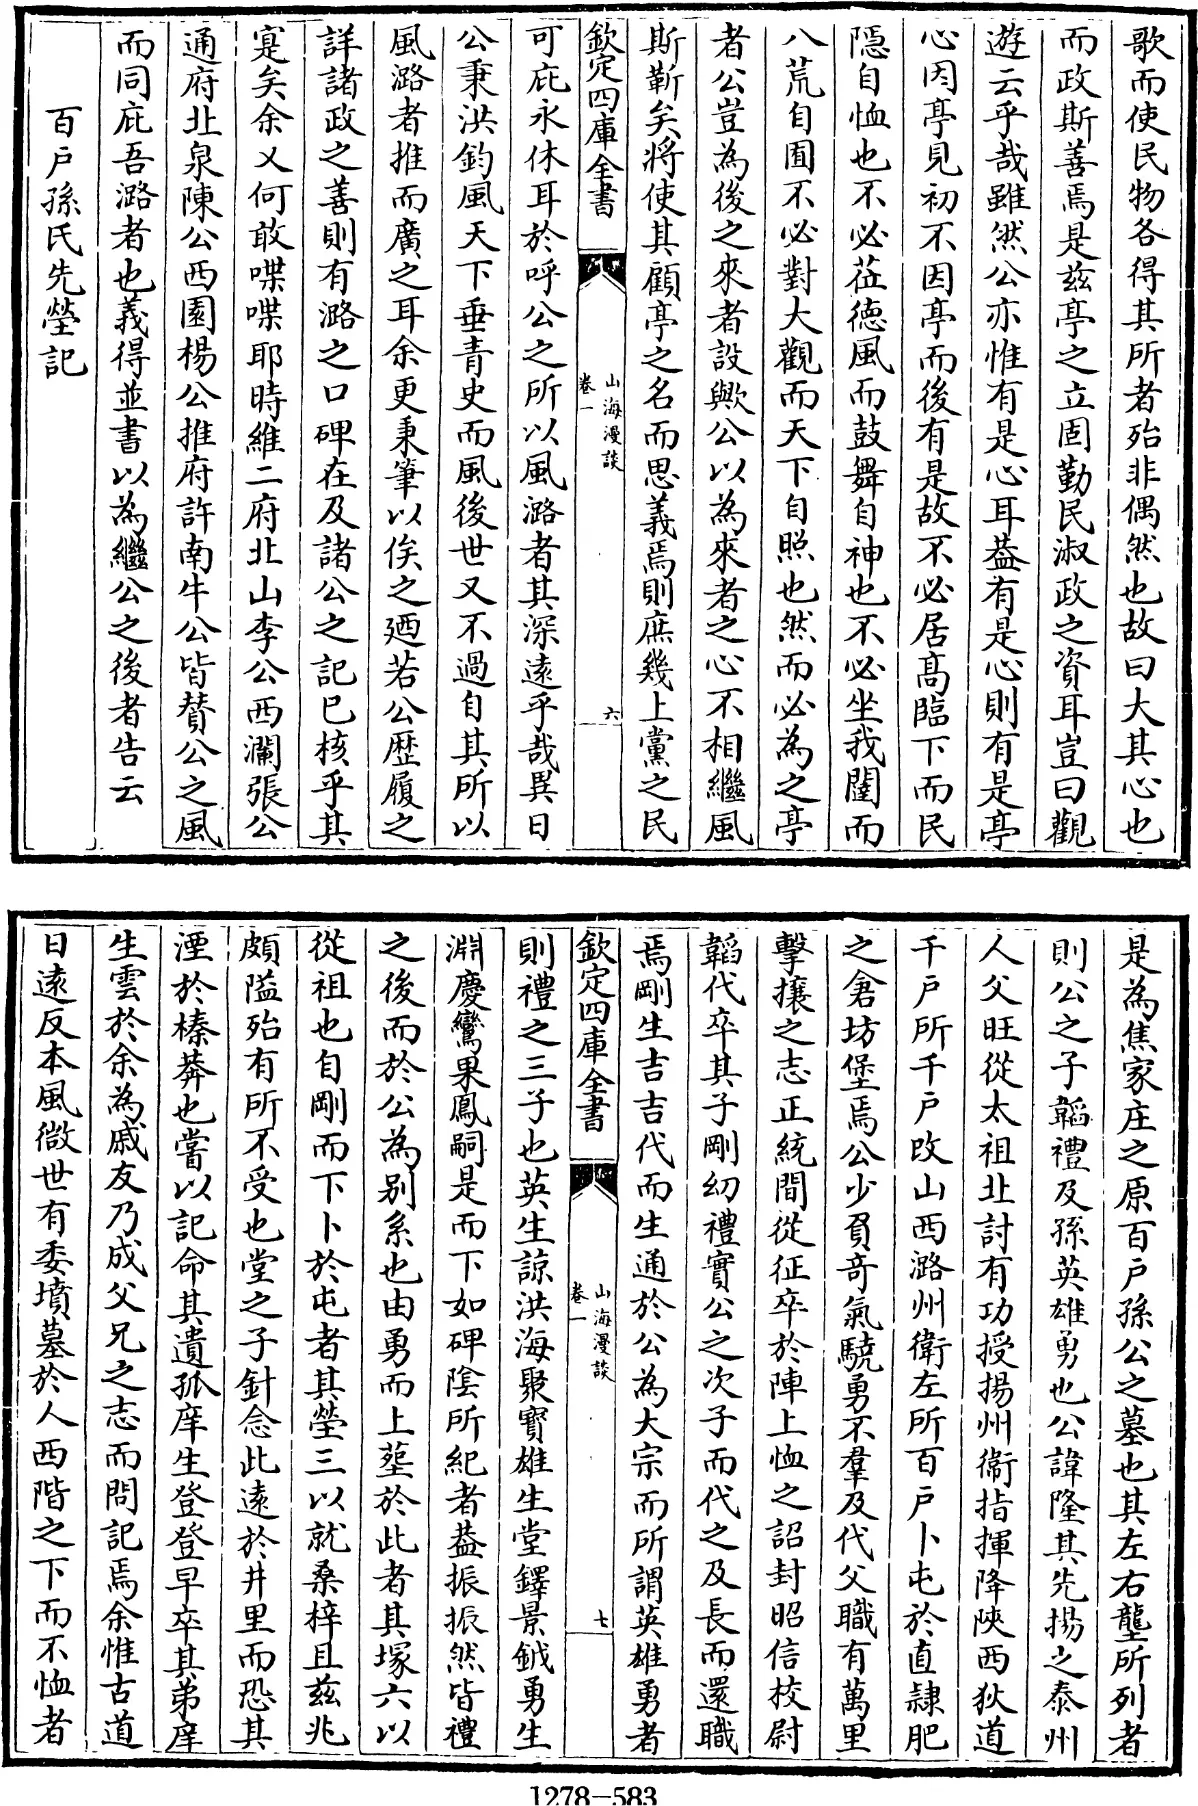 歌而使民物各得其所者殆非偶然也故曰大其心也
而政斯善焉是兹亭之立固勤民淑政之資耳豈曰觀
遊云乎哉雖然公亦惟有是心耳葢有是心則有是亭
心因亭見初不因亭而後有是故不必居髙臨下而民
隠自恤也不必莅徳風而鼓舞自神也不必坐我闥而
八荒自囿不必對大觀而天下自照也然而必為之亭
者公豈為後之來者設歟公以為來者之心不相繼風
斯靳矣將使其顧亭之名而思義焉則庶幾上黨之民
欽定四庫全書
山海漫談
卷一
六
可庇永休耳於呼公之所以風潞者其深遠乎哉異日
公秉洪鈞風天下垂青史而風後世又不過自其所以
風潞者推而廣之耳余更秉筆以俟之廼若公歴履之
詳諸政之善則有潞之口碑在及諸公之記已核乎其
寔矣余乂何敢喋喋耶時維二府北山李公西瀾張公
通府北泉陳公西園楊公推府許南牛公皆賛公之風
而同庇吾潞者也義得並書以為繼公之後者告云
百户孫氏先塋記
是為焦家庄之原百户孫公之墓也其左右壟所列者
則公之子韜禮及孫英雄勇也公諱隆其先揚之泰州
人父旺從太祖北討有功授揚州衞指揮降陜西狄道
千户所千户改山西潞州衛左所百户卜屯於直隷肥
之倉坊堡焉公少負奇氣驍勇不羣及代父職有萬里
擊攘之志正統間從征卒於陣上恤之詔封昭信校尉
韜代卒其子剛幼禮實公之次子而代之及長而還職
焉剛生吉吉代而生通於公為大宗而所謂英雄勇者
欽定四庫全書
山海漫談
卷一
七
則禮之三子也英生諒洪海聚寳雄生堂鐸景鉞勇生
淵慶鸞果鳳嗣是而下如碑隂所紀者葢振振然皆禮
之後而於公為别系也由勇而上塟於此者其塚六以
從祖也自剛而下卜於屯者其塋三以就桑梓且兹兆
頗隘殆有所不受也堂之子針念此逺於井里而恐其
湮於榛莽也嘗以記命其遺孤庠生登登早卒其弟庠
生雲於余為戚友乃成父兄之志而問記焉余惟古道
日逺反本風微世有委墳墓於人西階之下而不恤者
1278-583